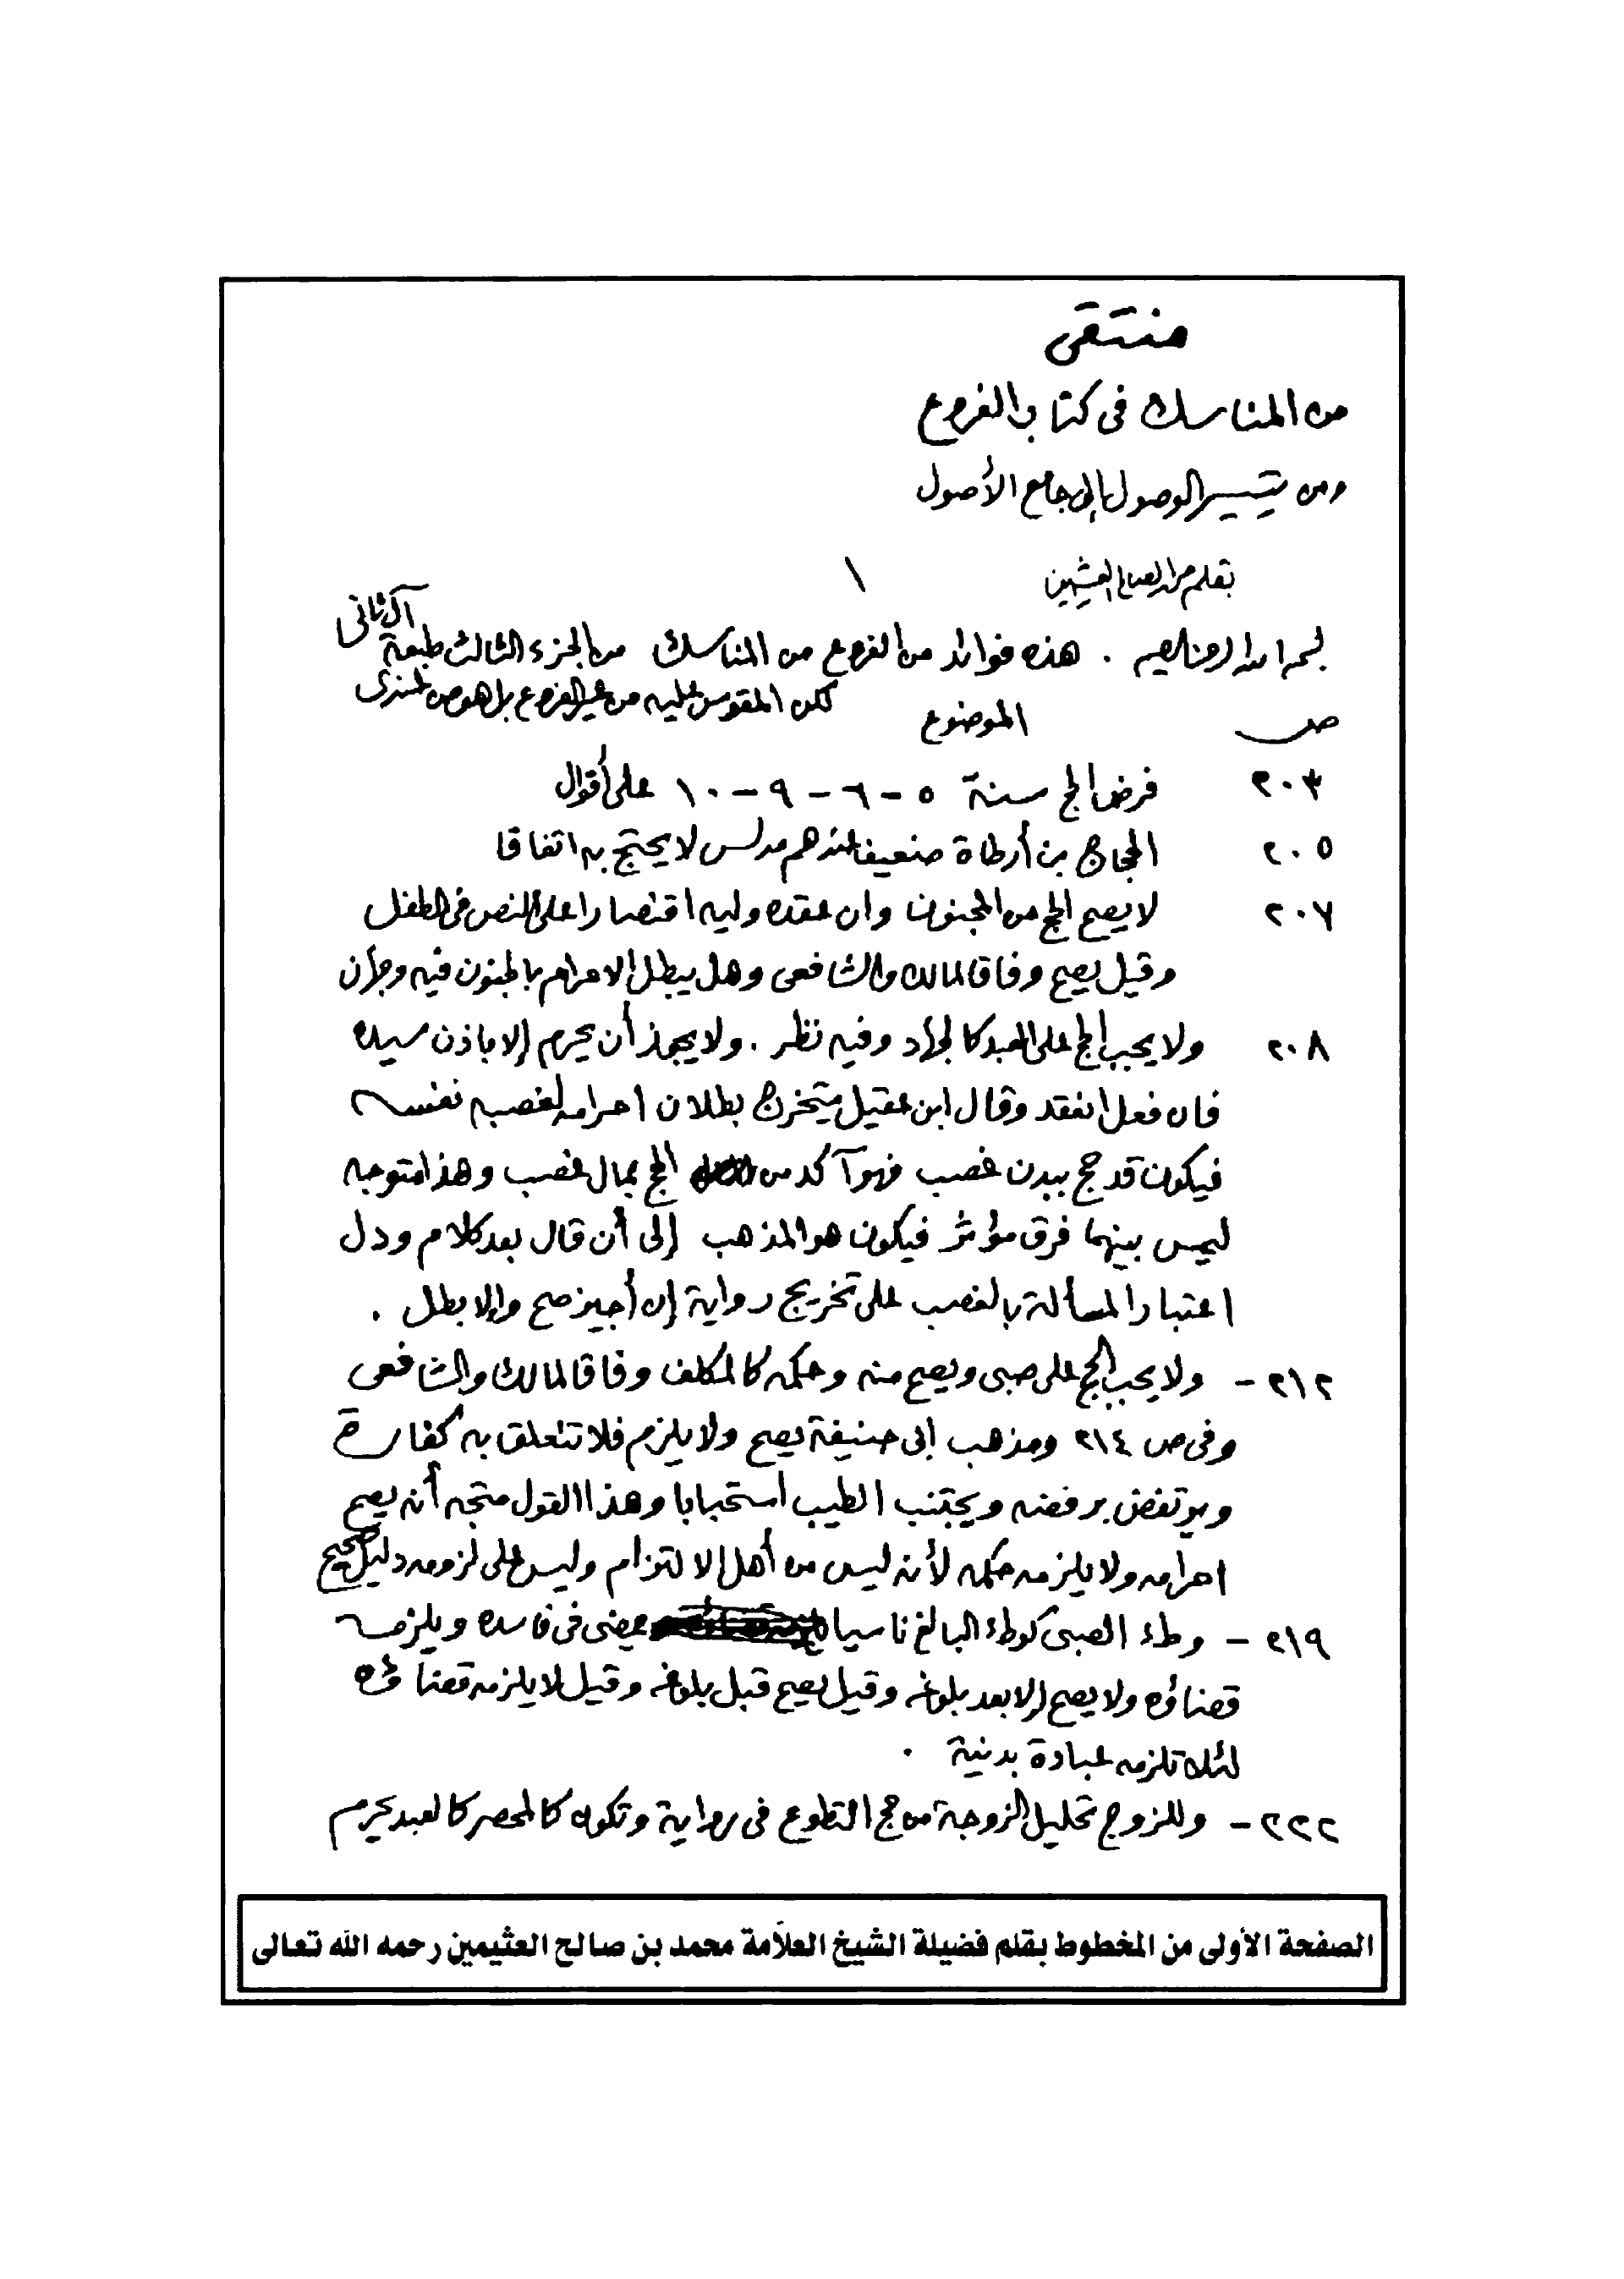 منتقى
من المناسك في كتاب الفروع
ومن تيسير الوصول إلى جامع الأصول
بقلم محمد الصالح العثيمين
١
بسم الله الرحمن الرحيم . هذه فوائد من الفروع من المناسك من الجزء الثالث طبعة آل ثاني
لكن المقوس عليه من غير الفروع بل هو من عندي
ص الموضوع
٢٠٣ فرض الحج سنة ٥ - ٦ - ٩ - ١٠ على أقوال
٢٠٥ الحجاج بن أرطاة ضعيف عندهم مدلس لا يحتج به اتفاقا
٢٠٧ لا يصح الحج من المجنون وان عقده وليه اقتصارا على النص في الطفل
وقيل يصح وفاقا لمالك والشافعي وهل يبطل الاحرام بالجنون فيه وجهان
٢٠٨ ولا يجب الحج على العبد كالجهاد وفيه نظر . ولا يجوز أن يحرم إلا باذن سيده
فان فعل انعقد وقال ابن عقيل يتخرج بطلان احرامه لغصبه نفسه
فيكون قد حج ببدن غصب فهو آكد من الحج بمال غصب وهذا متوجه
ليس بينهما فرق مؤثر فيكون هو المذهب إلى أن قال بعد كلام ودل
اعتبار المسألة بالغصب على تخريج رواية إن أجيز صح وإلا بطل .
٢١٢ - ولا يجب الحج على صبي ويصح منه وحكمه كالمكلف وفاقا لمالك والشافعي
وفي ص ٢١٤ ومذهب أبي حنيفة يصح ولا يلزم فلا تتعلق به كفارة
ويرتفض برفضه ويجتنب الطيب استحبابا وهذا القول متجه أن يصح
احرامه ولا يلزمه حكمه لأنه ليس من أهل الالتزام وليس على لزومه دليل صحيح
٢١٩ - وطء الصبي كوطء البالغ ناسيا يمضي في فاسده ويلزمه
قضاؤه ولا يصح إلا بعد بلوغه وقيل يصح قبل بلوغه وقيل لا يلزمه قضاؤه
لئلا تلزمه عبادة بدنية .
٢٢٢ - وللزوج تحليل الزوجة من حج التطوع في رواية وتكون كالمحصر كالعبد يحرم
الصفحة الأولى من المخطوط بقلم فضيلة الشيخ العلاّمة محمد بن صالح العثيمين رحمه الله تعالى